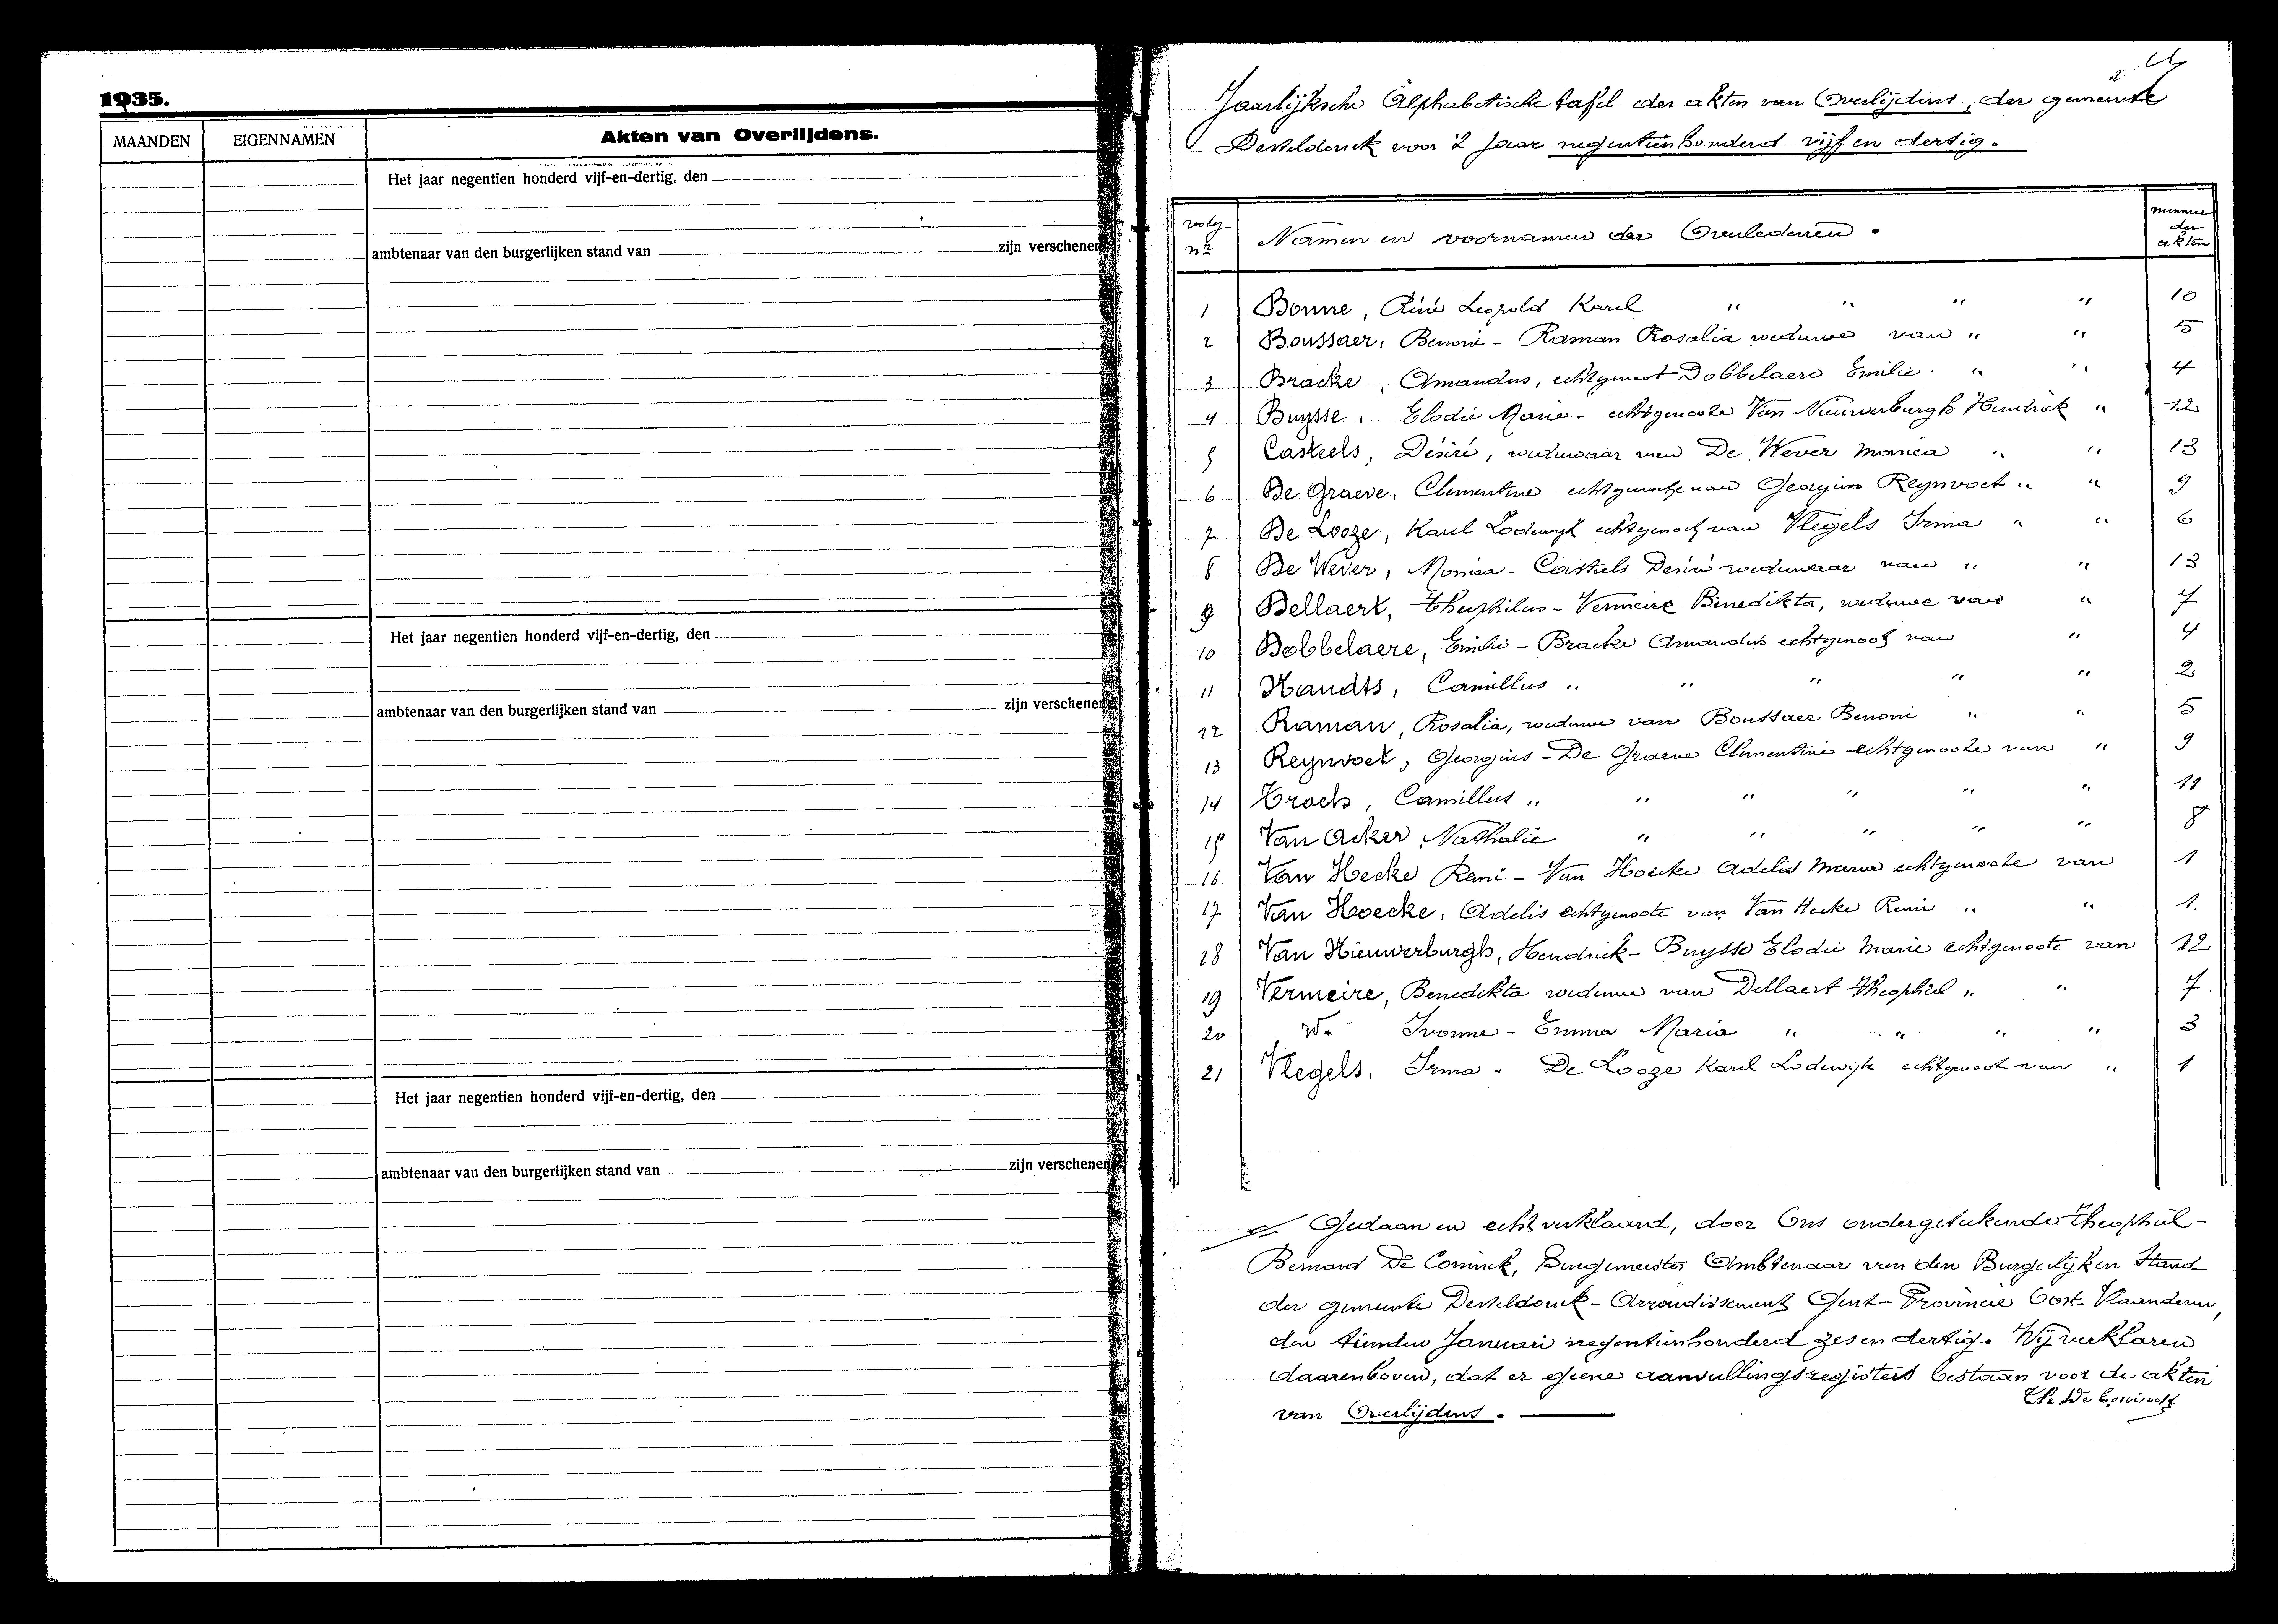 1935.
MAANDEN EIGENNAMEN Akten van Overlijdens.
Het jaar negentien honderd vijf-en-dertig, den
ambtenaar van den burgerlijken stand van zijn verschenen
Het jaar negentien honderd vijf-en-dertig, den
ambtenaar van den burgerlijken stand van zijn verschenen
Het jaar negentien honderd vijf-en-dertig, den
ambtenaar van den burgerlijken stand van zijn verschenen
Jaarlijksche Alphabetische tafel der akten van Overlijdens, der gemeente
Desteldonck voor 't jaar negentienhonderd vijf en dertig.
volg nr Namen en voornamen der Overledenen. nummer der akten
1 Bonne, Réné Leopold Karel " " " " 10
2 Boussaer, Benoni - Raman Rosalia weduwe van " " 5
3 Bracke, Amandus, echtgenoot Dobbelaere Emilie. " " 4
4 Buysse. Elodie Marie - echtgenoote Van Nieuwerburgh Hendrick " 12
5 Casteels, Désiré, weduwaar van De Wever Monica " " 13
6 De Graeve, Clementine echtgenoote van Georgius Reynvoet " " 9
7 De Looze, Karel Lodewyk echtgenoot van Vlegels Irma " " 6
8 De Wever, Monica - Casteels Desiré weduwaar van " " 13
9 Dellaert, Theophilus - Vermeire Benedikta, weduwe van " 7
10 Dobbelaere, Emilie - Bracke Amandus echtgenoot van " 4
11 Handts, Camillus " " " " " 2
12 Raman, Rosalia, weduwe van Boussaer Benoni " " 5
13 Reynvoet, Georgius - De Graeve Clementine echtgenoote van " 9
14 Troch, Camillus " " " " " " 11
15 Van Acker, Nathalie " " " " " 8
16 Van Hecke René - Van Hoecke Adelis Maria echtgenoote van 1
17 Van Hoecke, Adelis echtgenoote van Van Hecke René " " 1.
18 Van Nieuwerburgh, Hendrick - Buysse Elodie Marie echtgenoote van 12
19 Vermeire, Benedikta weduwe van Dellaert Theophiel " " 7.
20 id. Ivonne - Emma Maria " " " " 3
21 Vlegels. Irma - De Looze Karel Lodewijk echtgenoot van " 1
Gedaan en echt verklaard, door Ons ondergeteekende Theophiel-
Bernard De Coninck, Burgemeester Ambtenaar van den Burgerlijken Stand
der gemeente Desteldonck - Arrondissement Gent - Provincie Oost-Vlaanderen,
den tienden Januari negentienhonderd zes en dertig. Wij verklaren
daarenboven, dat er geene aanvullingsregisters bestaan voor de akten
van Overlijdens.
Th. De Coninck